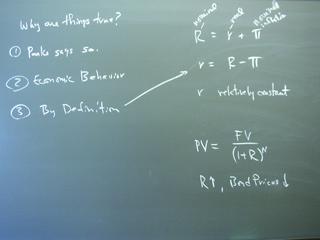 Why are things true?
① Parks says so.
② Economic Behavior
③ By Definition
nominal real nominal inflation
R = r + π
r = R - π
r relatively constant
PV = FV / (1+R)^N
R↑, Bond Prices ↓